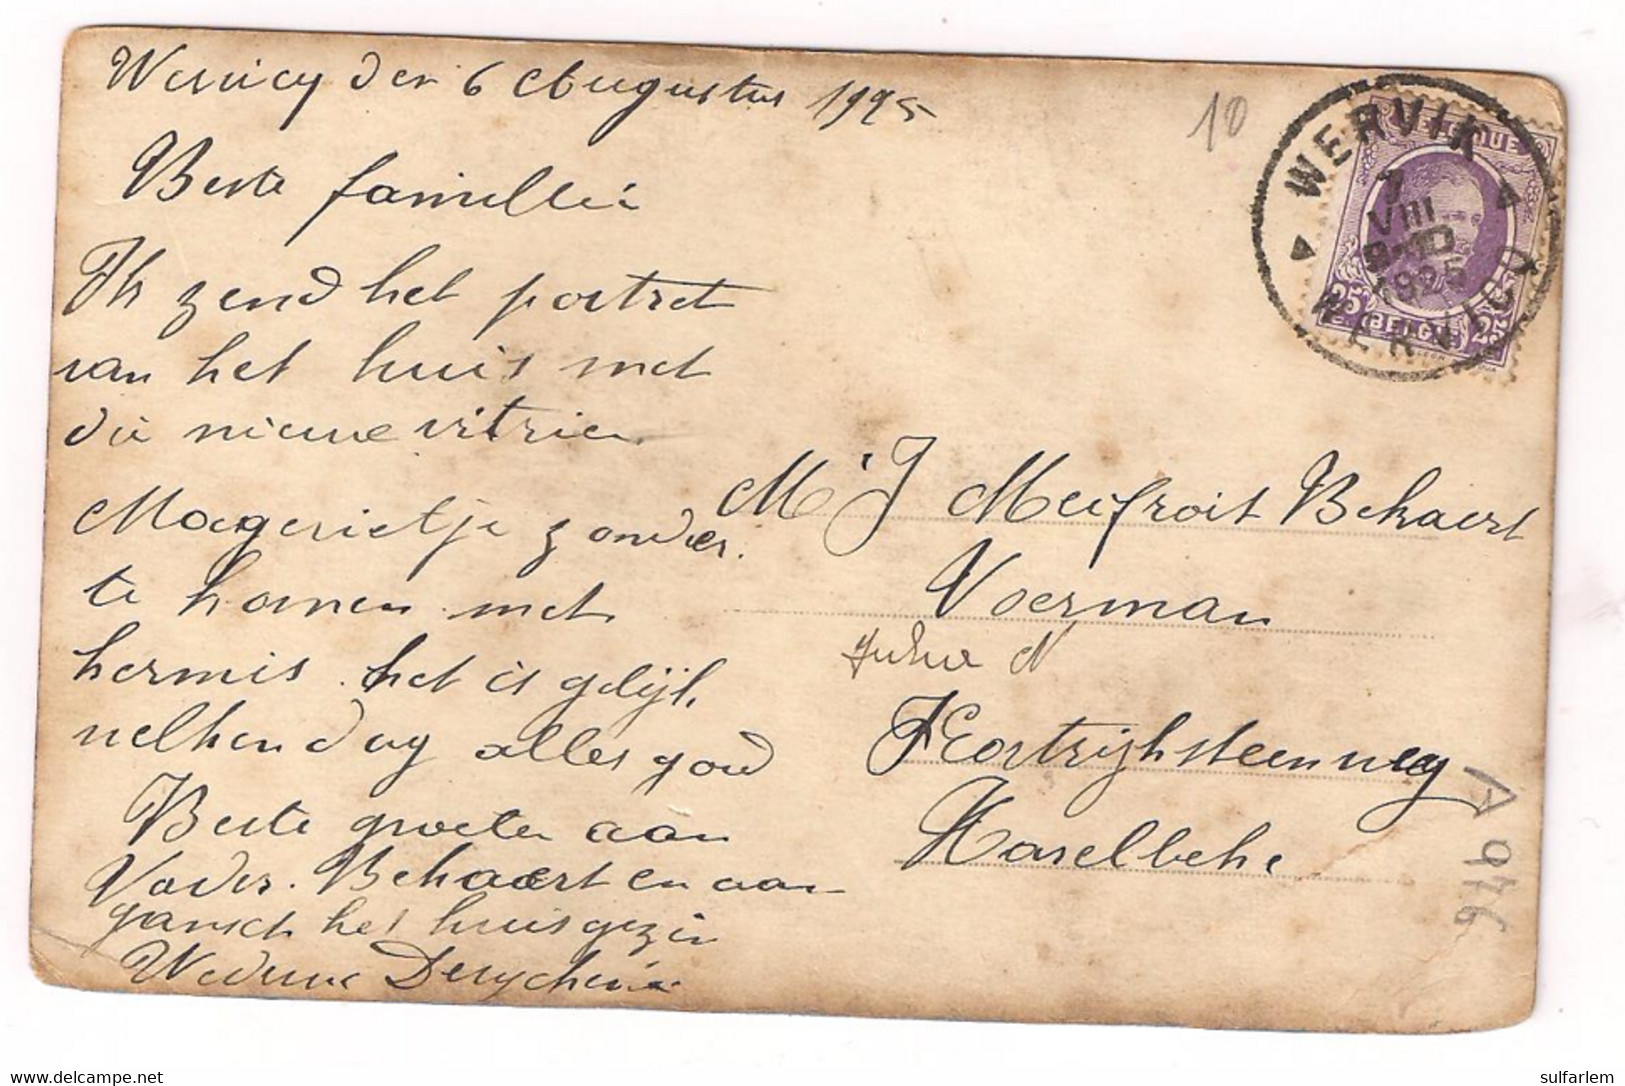 Wervicq den 6 Augustus 1925
Beste familli
Ik zend het portret
van het huis met
die nieuwe vitrien
Magerietje zonder
te komen met
kermis. het is gelijk
welken dag alles goed
Beste groeten aan
Vader. Bekaert en aan
gansch het huisgezin
Weduwe
10
WERVIK
7
VIII
1925
WERVICQ
BELGIQUE
25 BELGIË 25
M J Meifroit Bekaert
Voerman
N
Kortrijksteenweg
Harelbeke
A 976
delcampe.net
sulfarlem